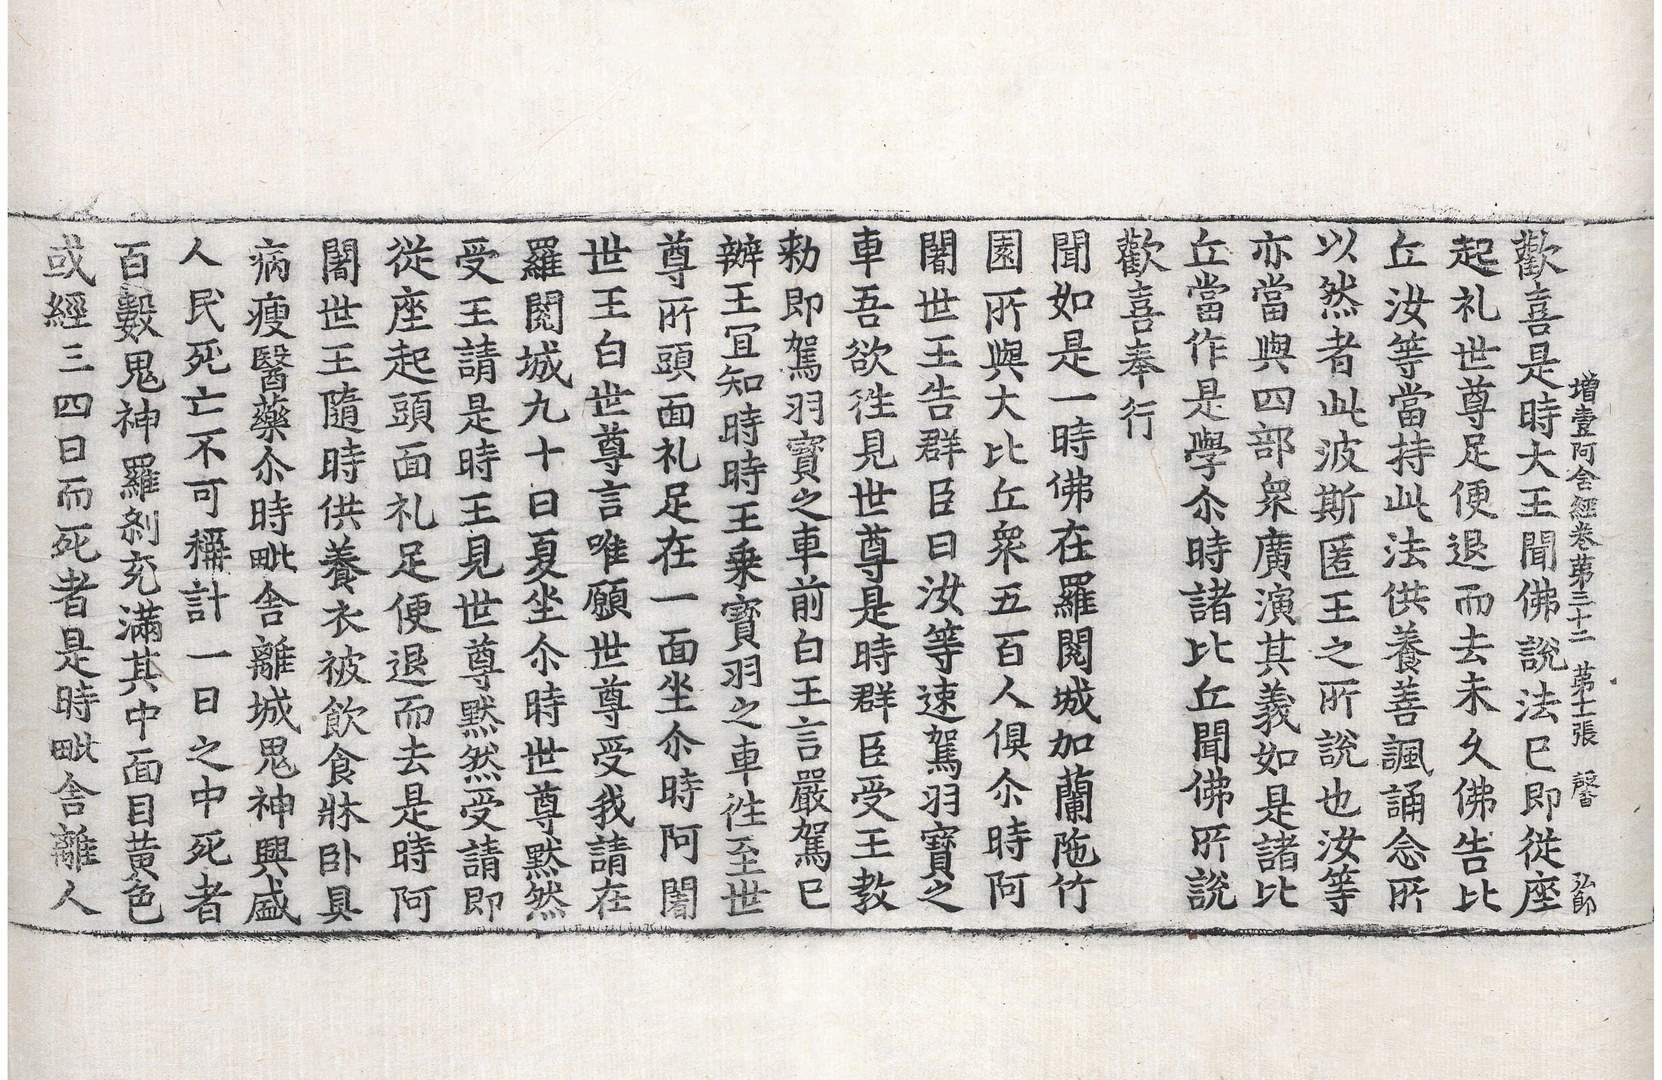 增壹阿含經卷第三十二 第十一張 馨 弘節
歡喜是時大王聞佛說法已即從座
起礼世尊足便退而去未久佛告比
丘汝等當持此法供養善諷誦念所
以然者此波斯匿王之所說也汝等
亦當與四部衆廣演其義如是諸比
丘當作是學尒時諸比丘聞佛所說
歡喜奉行
聞如是一時佛在羅閱城加蘭陁竹
園所與大比丘衆五百人俱尒時阿
闍世王告群臣曰汝等速駕羽寶之
車吾欲往見世尊是時群臣受王教
勑即駕羽寶之車前白王言嚴駕已
辦王冝知時時王乗寶羽之車往至世
尊所頭面礼足在一面坐尒時阿闍
世王白世尊言唯願世尊受我請在
羅閱城九十日夏坐尒時世尊默然
受王請是時王見世尊默然受請即
從座起頭面礼足便退而去是時阿
闍世王隨時供養衣被飲食牀卧具
病瘦醫藥尒時毗舍離城鬼神興盛
人民死亡不可稱計一日之中死者
百數鬼神羅剎充滿其中面目黃色
或經三四日而死者是時毗舍離人